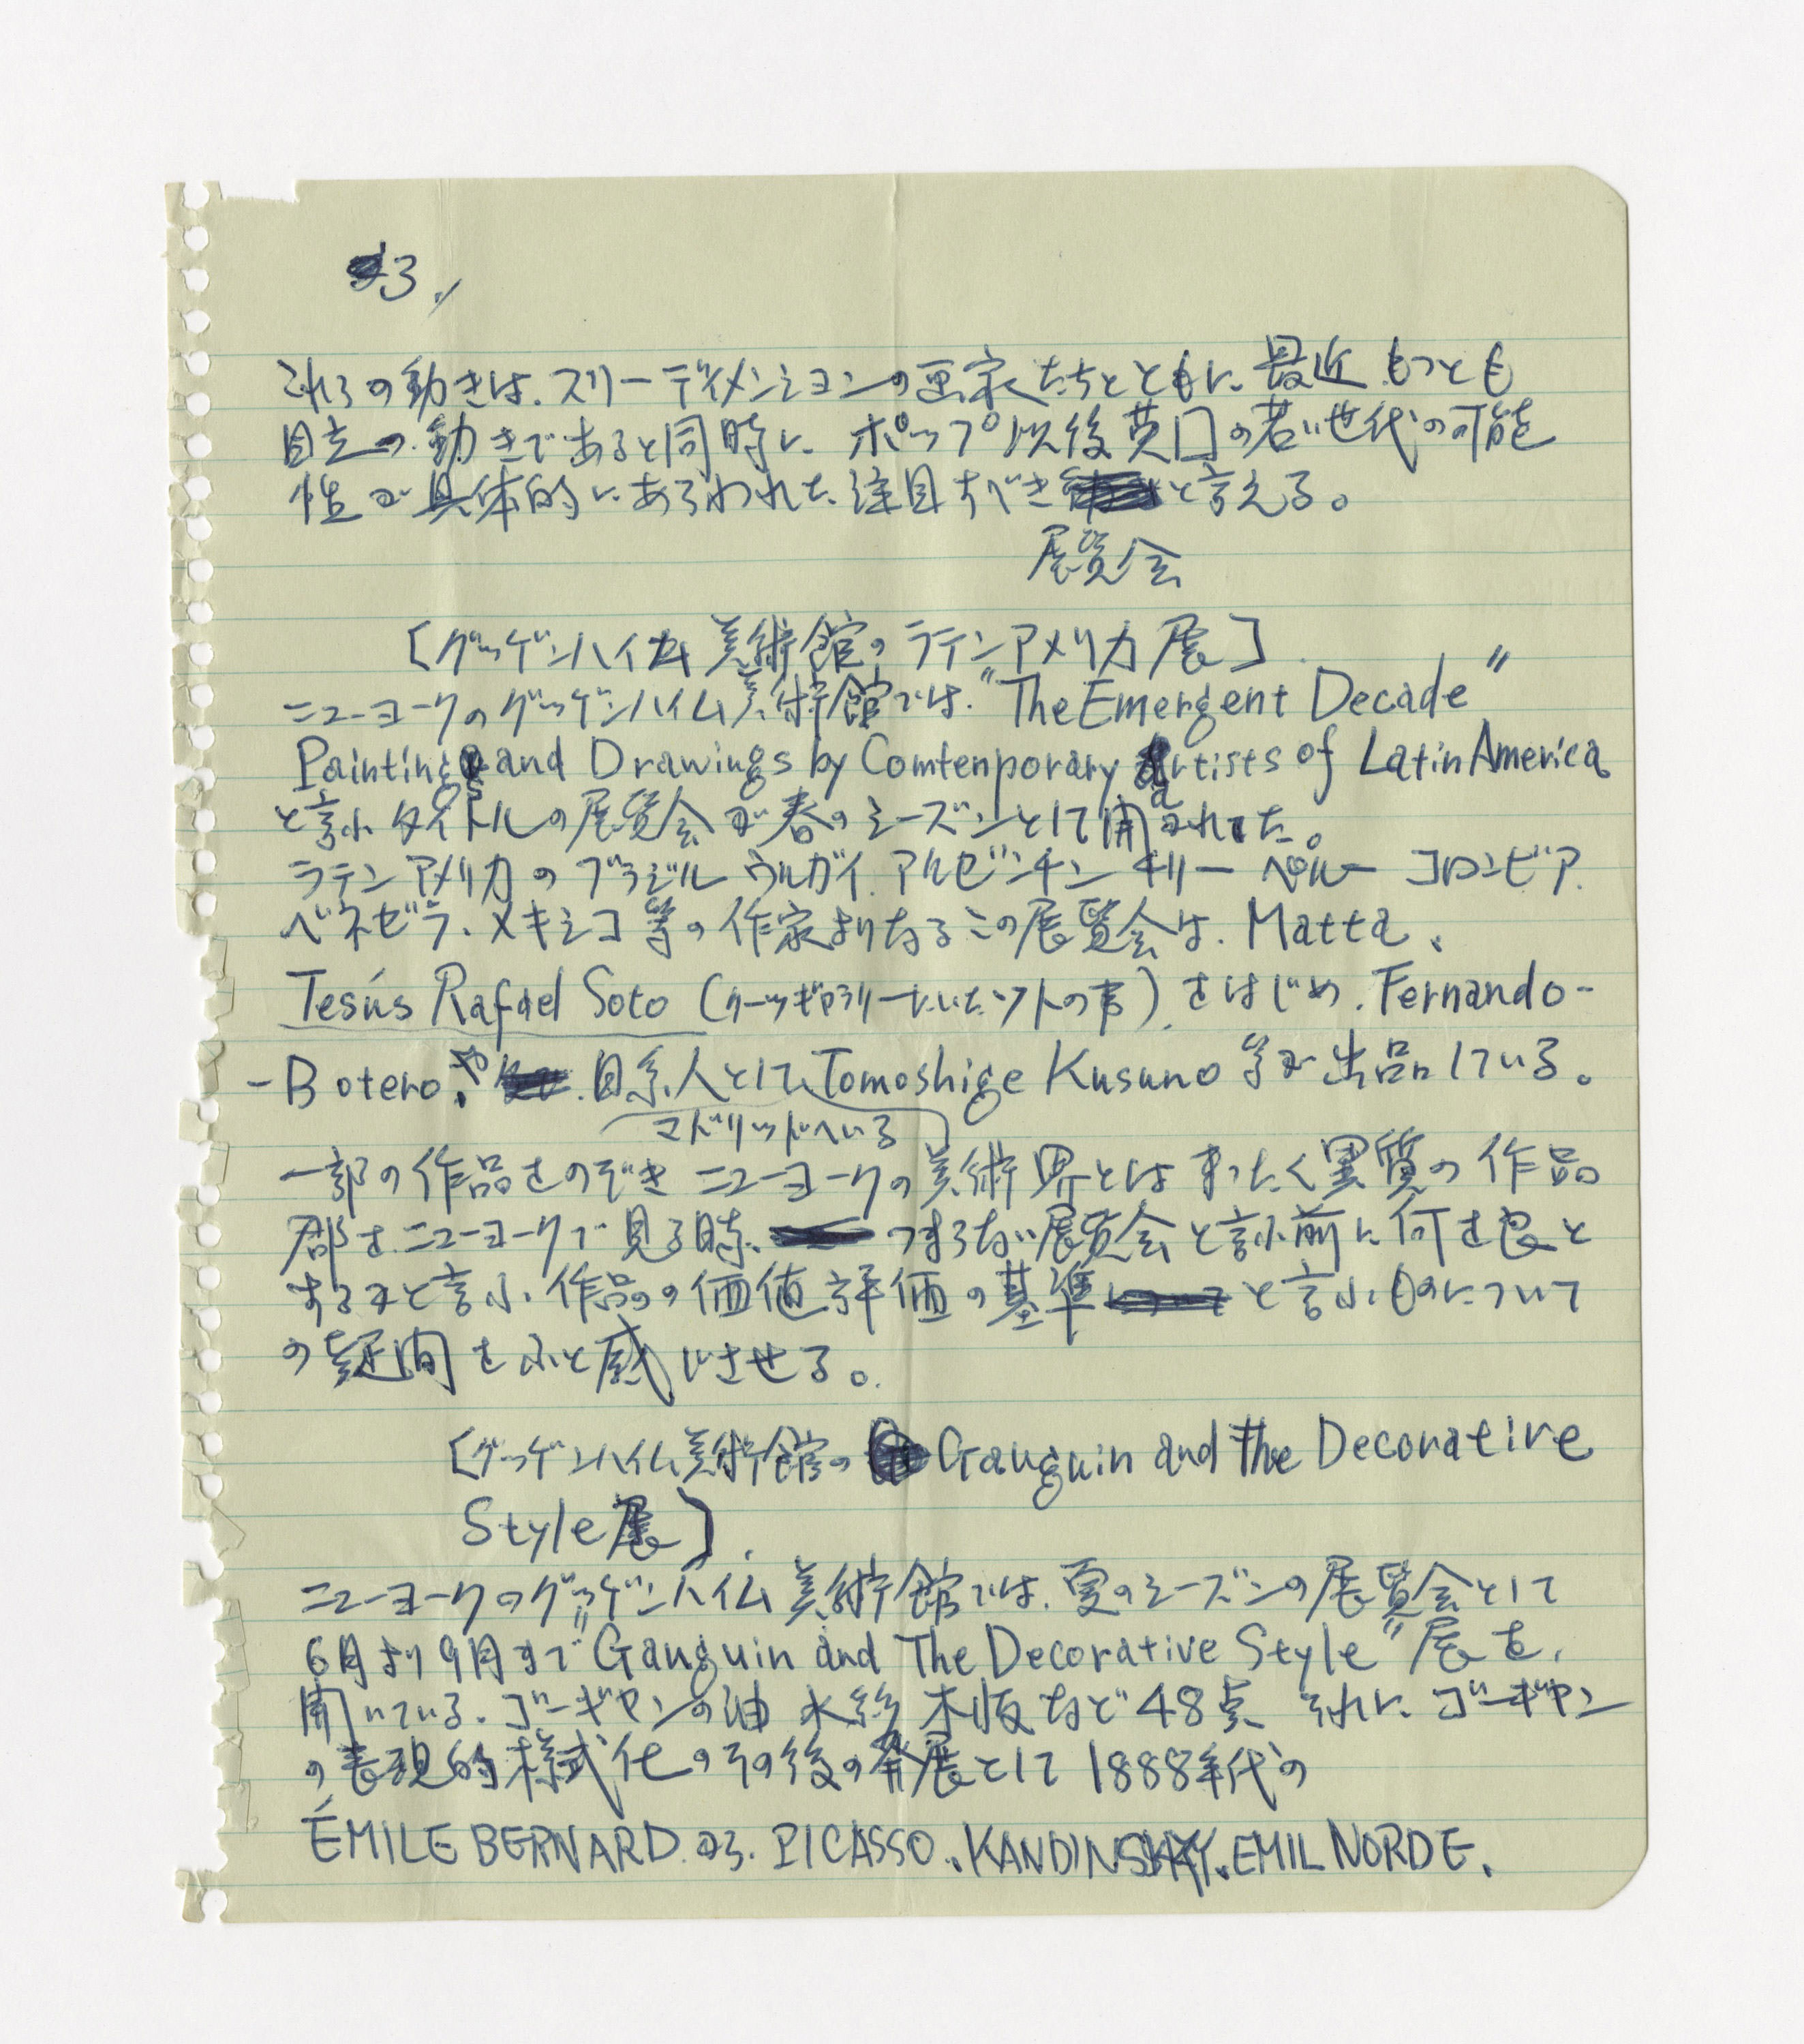 3.
これらの動きは、スリーディメンションの画家たちとともに、最近もっとも
目立つ動きであると同時に ポップ以後英国の若い世代の可能
性が具体的にあらわれた注目すべき と言える。
展覧会
[グッゲンハイム美術館のラテンアメリカ展]
ニューヨークのグッゲンハイム美術館では、"The Emergent Decade"
Paintings and Drawings by Comtenporary artists of Latin America
と言ふタイトルの展覧会が春のシーズンとして開かれた。
ラテンアメリカのブラジル ウルガイ、アルゼンチン チリー ペルー コロンビア
ベネゼラ、メキシコ等の作家よりなるこの展覧会は、Matta、
Tesús Rafael Soto (クーツギャラリーにいたソトの事)、をはじめ、Fernando-
-Botero、や 日系人として、Tomoshige Kusuno 等が出品している。
マドリッドへいる
一部の作品をのぞき ニューヨークの美術界とはまったく異質の作品
郡をニューヨークで見る時、 つまらない展覧会と言ふ前に何を良と
するかと言ふ、作品の価値評価の基準 と言ふものについて
の疑問をふと感じさせる。
[グッゲンハイム美術館の Gauguin and the Decorative
Style展]
ニューヨークのグッゲンハイム美術館では、夏のシーズンの展覧会として
6月より9月まで"Gauguin and The Decorative Style"展を、
開いている。ゴーギャンの油 水絵 木版など48点 それに、ゴーギャン
の表現的様式化のその後の発展として1888年代の
ÉMILE BERNARD から、PICASSO、KANDINSKY、EMIL NORDE、